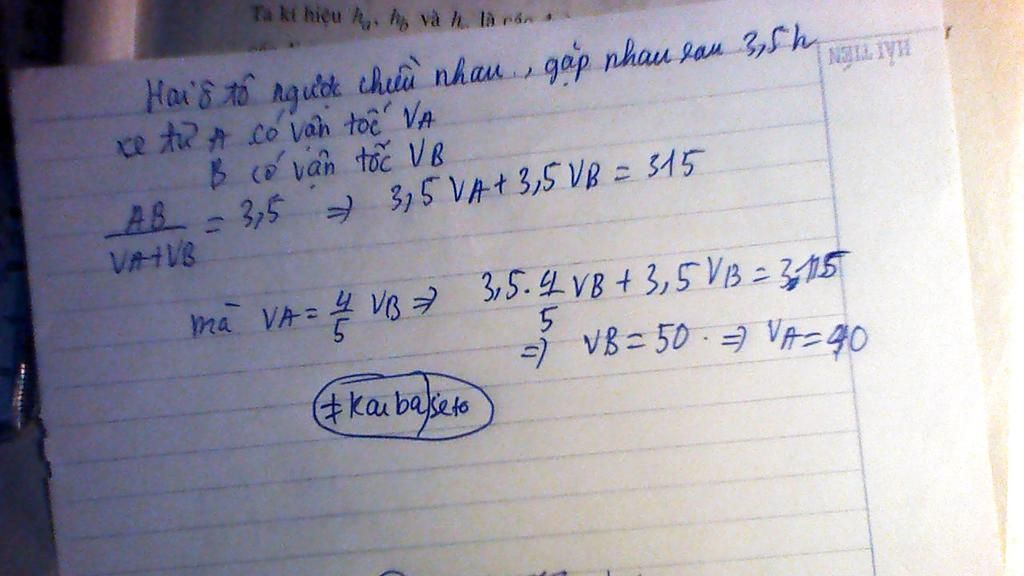 Ta kí hiệu hₐ, h_b và h
HẢI TIẾN
Hai ô tô ngược chiều nhau, gặp nhau sau 3,5h
xe từ A có vận tốc VA
B có vận tốc VB
AB/(VA+VB) = 3,5 => 3,5 VA + 3,5 VB = 315
mà VA = 4/5 VB => 3,5 . 4/5 VB + 3,5 VB = 315
=> VB = 50 . => VA = 40
#Kaibaseto